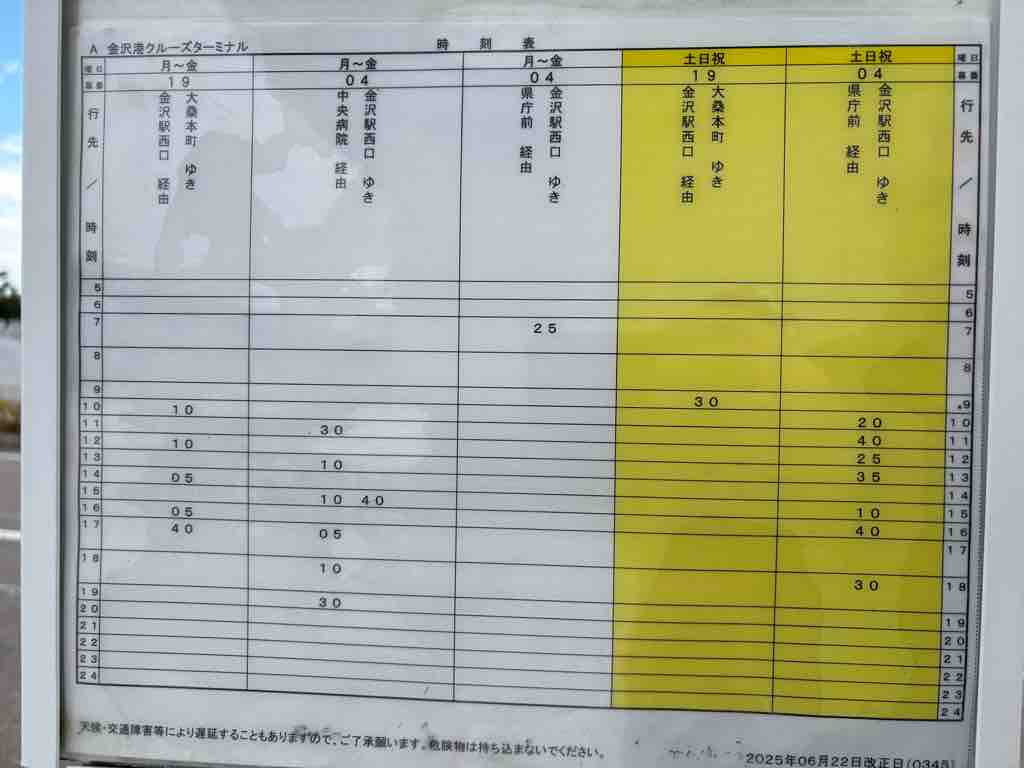 A 金沢港クルーズターミナル 時刻表
曜日 月～金 月～金 月～金 土日祝 土日祝 曜日
系番 19 04 04 19 04 系番
行先／時刻
大桑本町 ゆき
金沢駅西口 経由
金沢駅西口 ゆき
中央病院 経由
金沢駅西口 ゆき
県庁前 経由
大桑本町 ゆき
金沢駅西口 経由
金沢駅西口 ゆき
県庁前 経由
行先／時刻
5 5
6 6
7 25 7
8 8
9 30 9
10 10 20 10
11 30 40 11
12 10 25 12
13 10 35 13
14 05 14
15 10 40 10 15
16 05 40 16
17 40 05 17
18 10 30 18
19 30 19
20 20
21 21
22 22
23 23
24 24
天候・交通障害等により遅延することもありますので、ご了承願います。危険物は持ち込まないでください。
2025年06月22日改正日(0345)